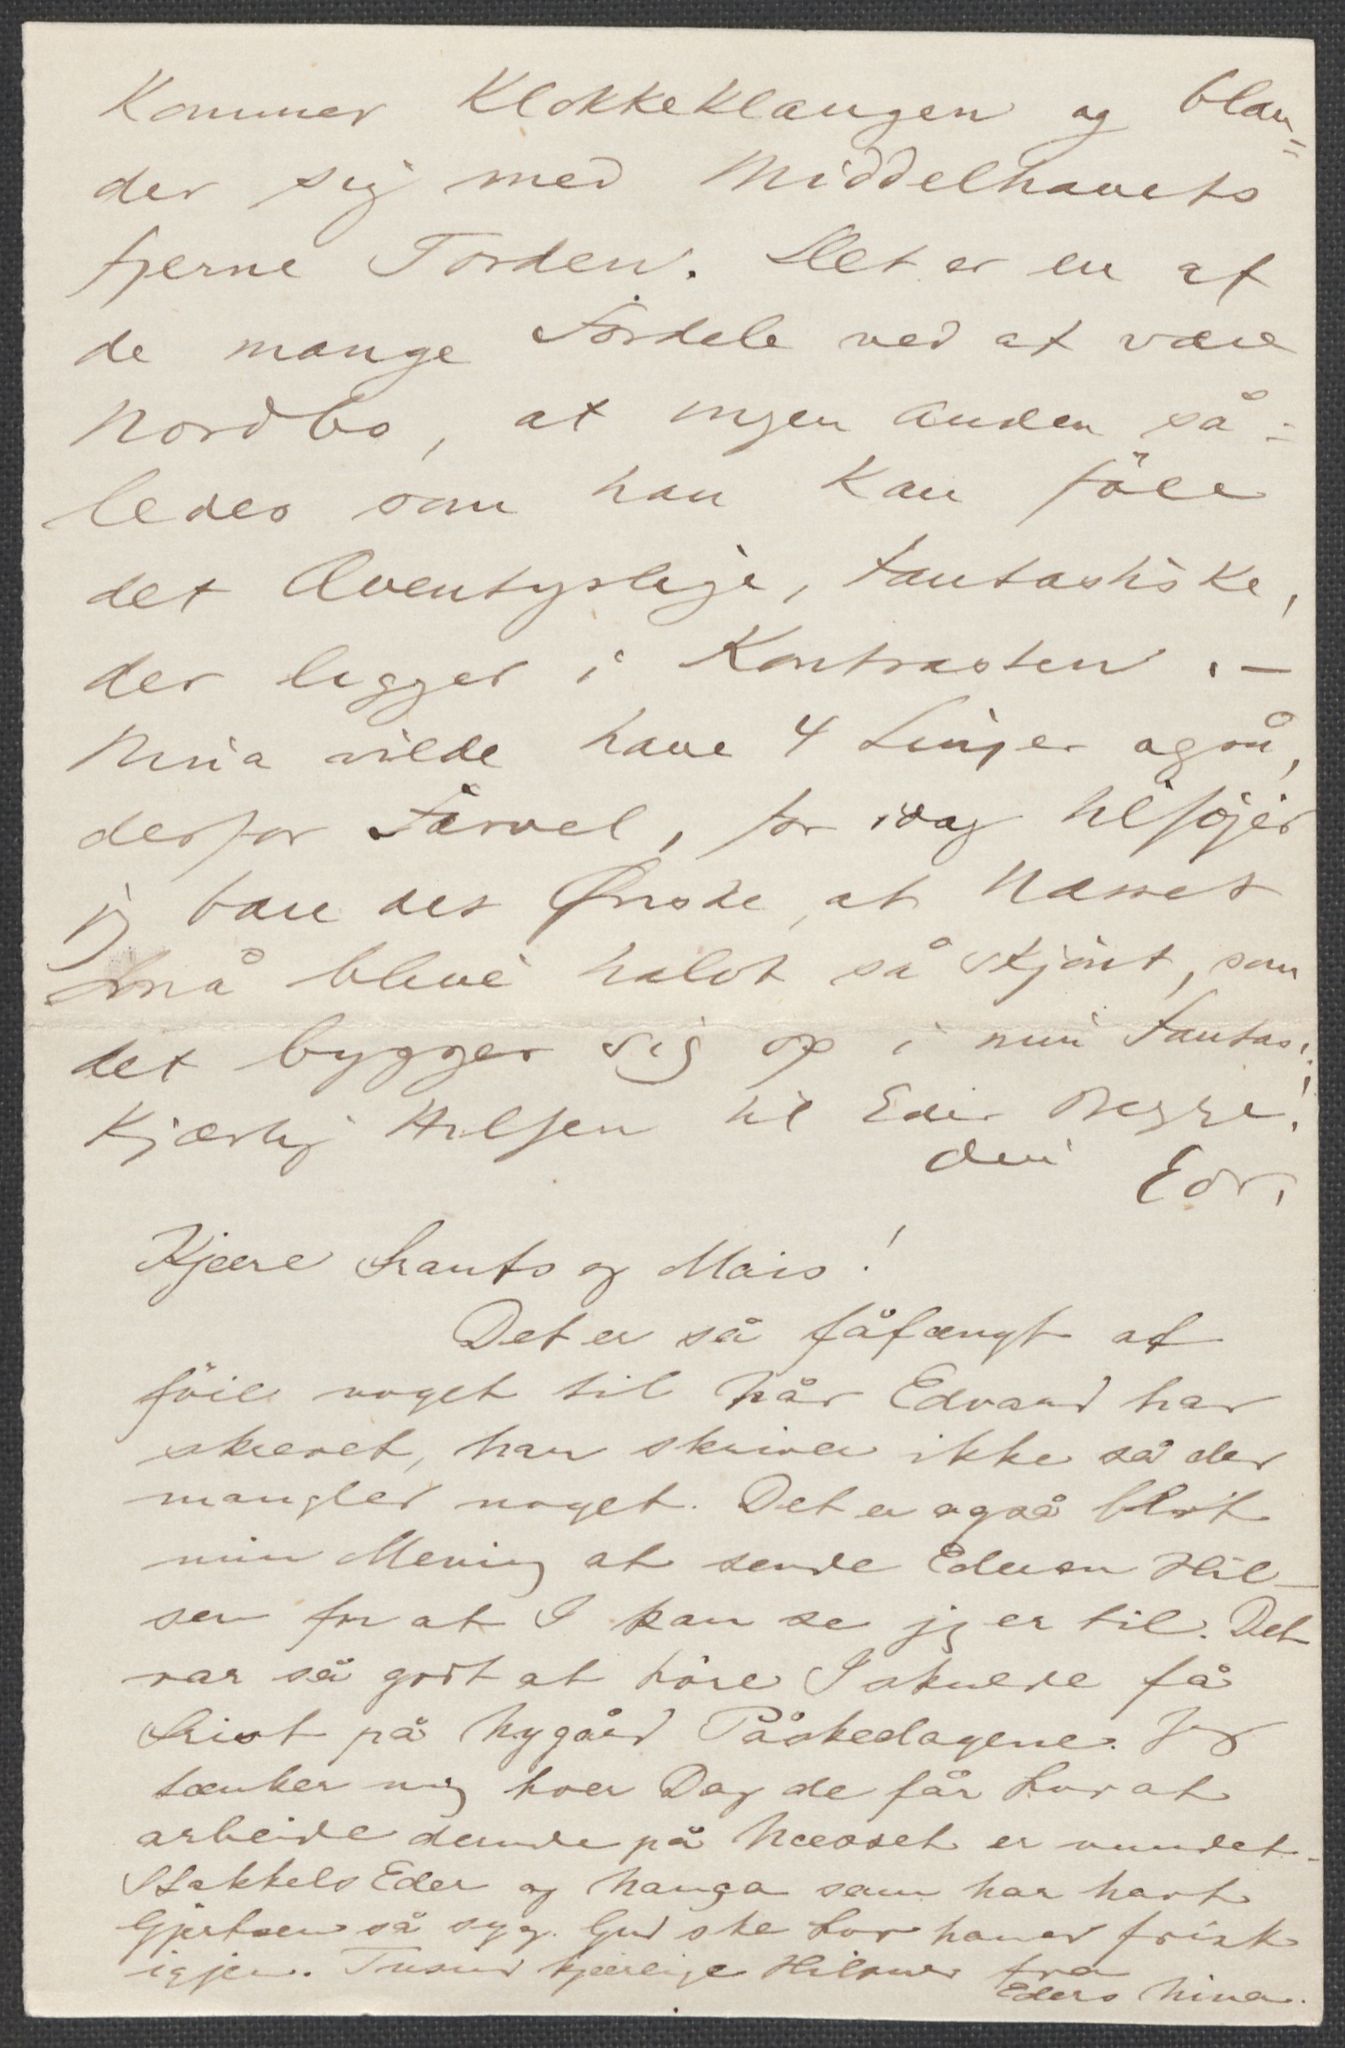 Kommer Klokkeklangen og blan=
der sig med Middelhavets
fjerne Torden. Det er en af
de mange Fordele ved at være
Nordbo, at ingen anden så=
ledes som han kan føle
det Æventyrlige, Fantastiske,
der ligger i Kontrasten. –
Nina vilde have 4 Linjer også,
derfor Farvel, for idag tilføjer
jeg bare det Ønske, at Næsset
må blive halvt så skjönt, som
det bygger sig op i min Fantasi!
Kjærlig Hilsen til Eder Begge!
din Edv.
Kjære Frants og Mais!
Det er så fåfængt at
föie noget til når Edvard har
skrevet, han skriver ikke så der
mangler noget. Det er også blot
min Mening at sende Eder en Hil-
sen for at I kan se jeg er til. Det
var så godt at höre I skulde få
Frist på Nygård Påskedagene. Jeg
tænker mig hver Dag de får Lov at
arbeide dernede på Næsset er vundet.
Stakkels Eder og Nanga som har havt
Gjertsen så syg. Gud ske Lov han er frisk
igjen. Tusind kjærlige Hilsner fra
Eders Nina.